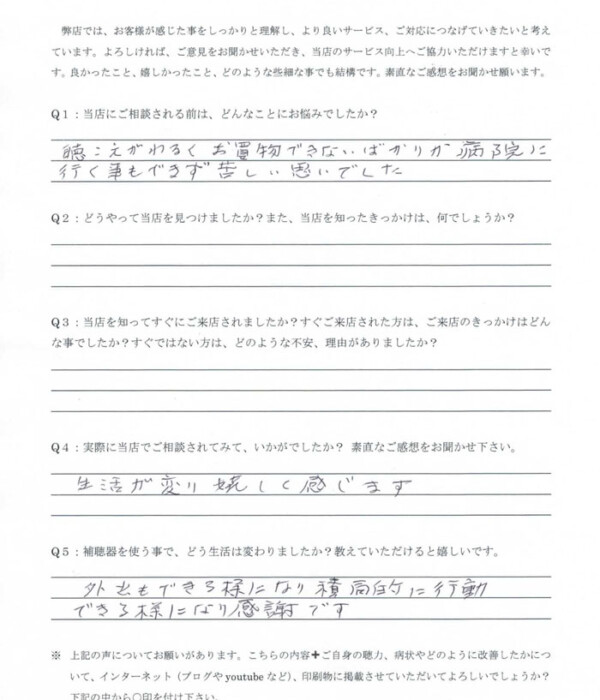 弊店では、お客様が感じた事をしっかりと理解し、より良いサービス、ご対応につなげていきたいと考え
ています。よろしければ、ご意見をお聞かせいただき、当店のサービス向上へご協力いただけますと幸いで
す。良かったこと、嬉しかったこと、どのような些細な事でも結構です。素直なご感想をお聞かせ願います。
Q1：当店にご相談される前は、どんなことにお悩みでしたか？
聴こえがわるくお買物できないばかりか病院に
行く事もできず苦しい思いでした
Q2：どうやって当店を見つけましたか？また、当店を知ったきっかけは、何でしょうか？
Q3：当店を知ってすぐにご来店されましたか？すぐご来店された方は、ご来店のきっかけはどん
な事でしたか？すぐではない方は、どのような不安、理由がありましたか？
Q4：実際に当店でご相談されてみて、いかがでしたか？ 素直なご感想をお聞かせ下さい。
生活が変り嬉しく感じます
Q5：補聴器を使う事で、どう生活は変わりましたか？教えていただけると嬉しいです。
外出もできる様になり積局的に行動
できる様になり感謝です
※ 上記の声についてお願いがあります。こちらの内容✚ご自身の聴力、病状やどのように改善したかにつ
いて、インターネット（ブログやyoutubeなど）、印刷物に掲載させていただいてよろしいでしょうか？
下記の中から〇印を付け下さい。